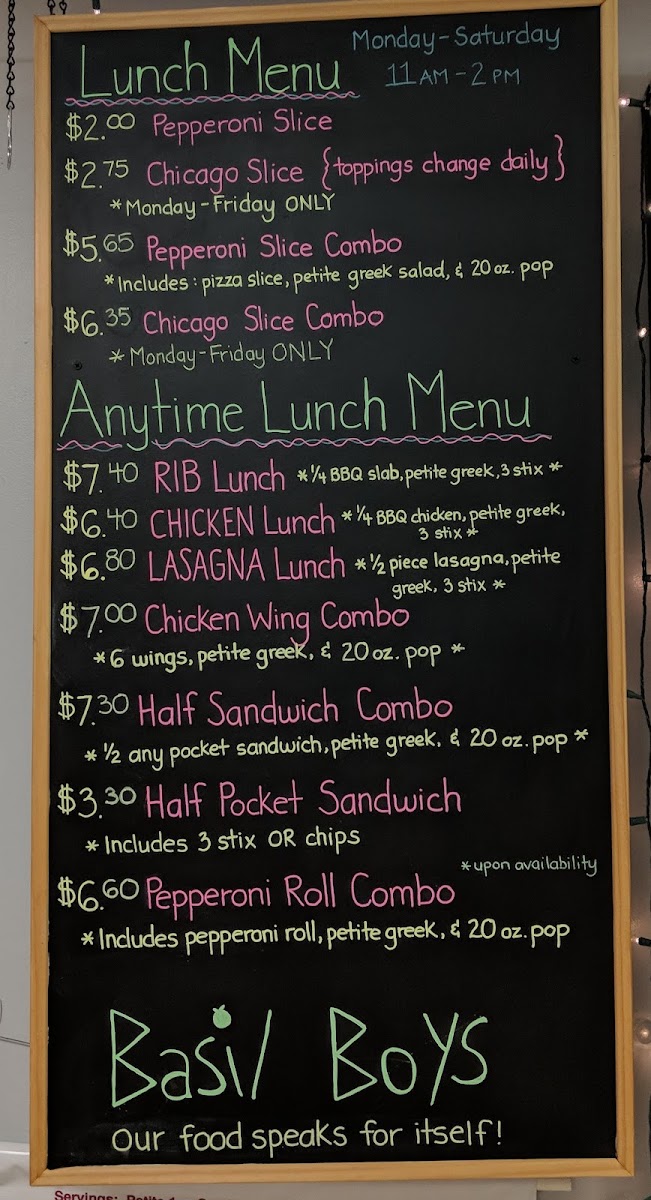 Lunch Menu
Monday-Saturday
11 AM - 2 PM
$2.00 Pepperoni Slice
$2.75 Chicago Slice {toppings change daily}
*Monday-Friday ONLY
$5.65 Pepperoni Slice Combo
*Includes: pizza slice, petite greek salad, & 20 oz. pop
$6.35 Chicago Slice Combo
*Monday-Friday ONLY
Anytime Lunch Menu
$7.40 RIB Lunch *¼ BBQ slab, petite greek, 3 stix*
$6.40 CHICKEN Lunch *¼ BBQ chicken, petite greek,
3 stix*
$6.80 LASAGNA Lunch *½ piece lasagna, petite
greek, 3 stix*
$7.00 Chicken Wing Combo
*6 wings, petite greek, & 20 oz. pop*
$7.30 Half Sandwich Combo
*½ any pocket sandwich, petite greek, & 20 oz. pop*
$3.30 Half Pocket Sandwich
*Includes 3 stix OR chips
*upon availability
$6.60 Pepperoni Roll Combo
*Includes pepperoni roll, petite greek, & 20 oz. pop
Basil Boys
our food speaks for itself!
Servings: